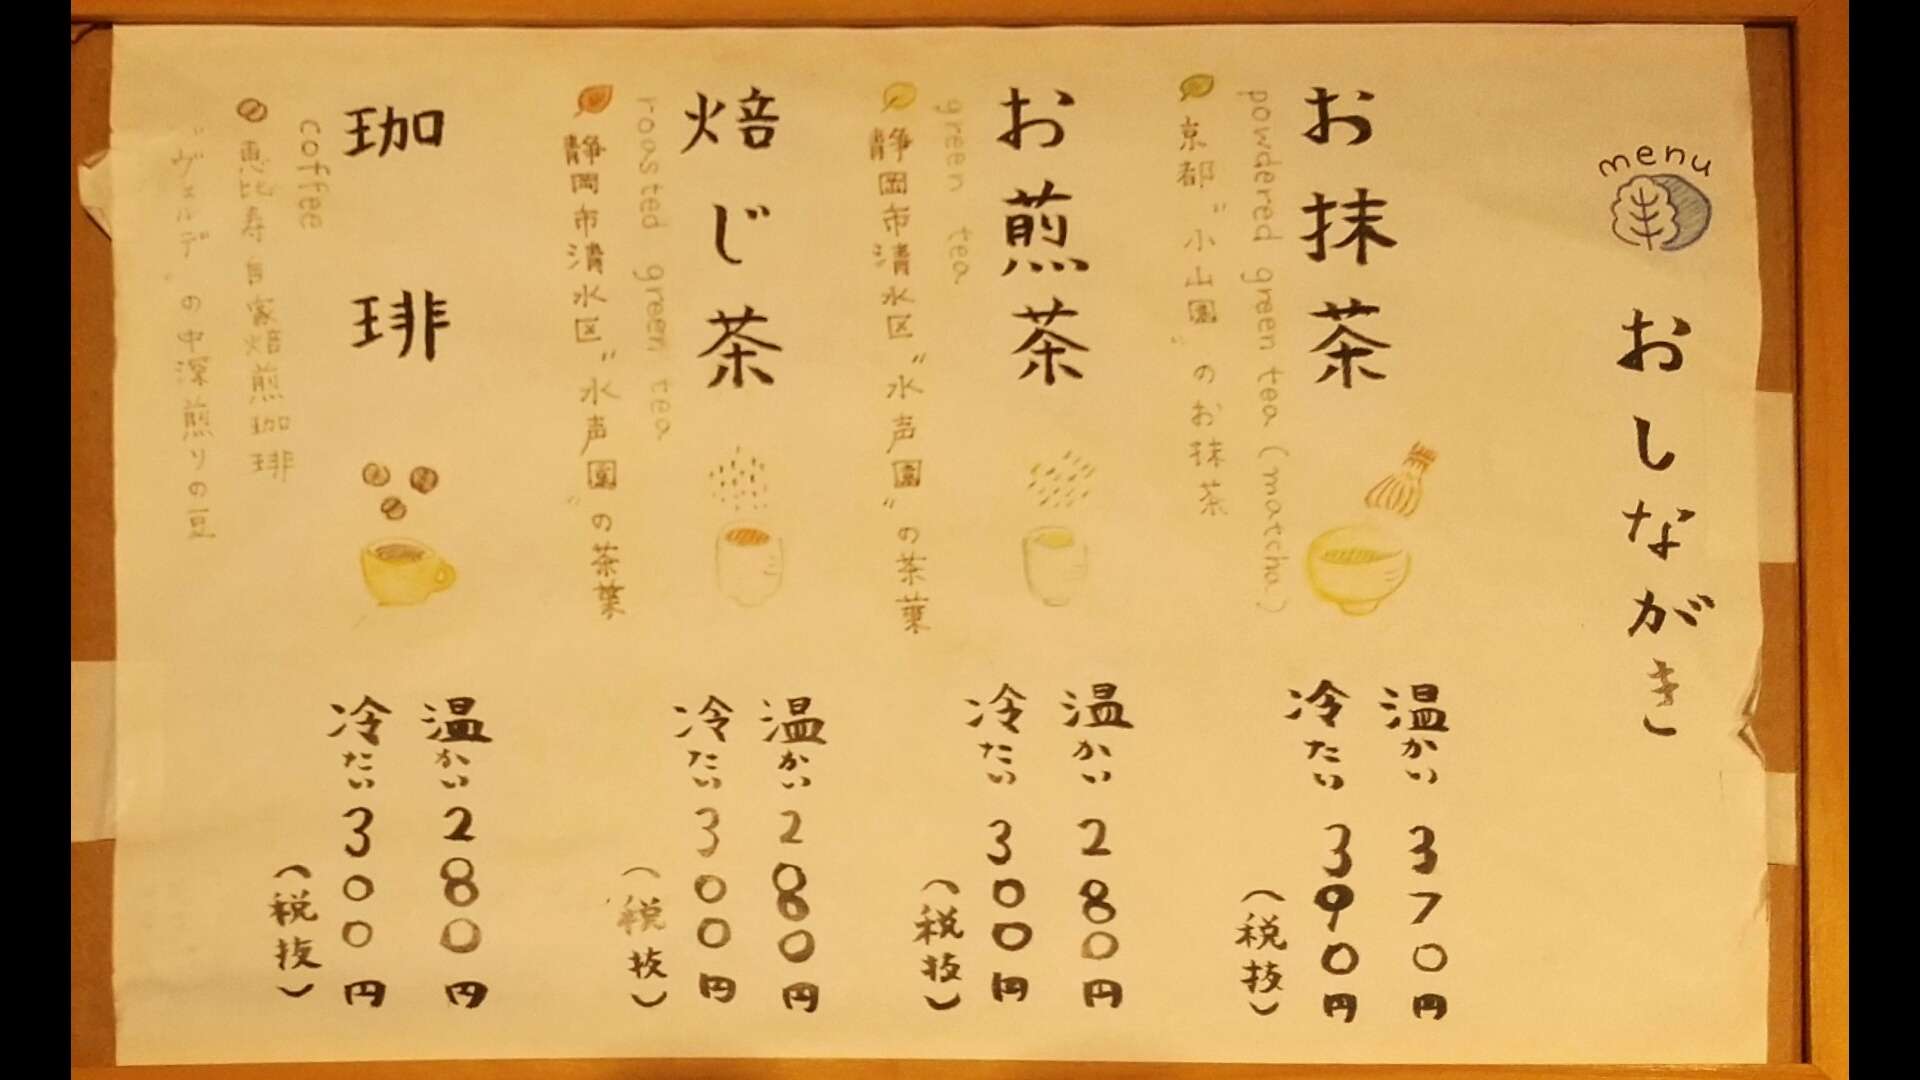 menu
おしながき
お抹茶
powdered green tea (matcha)
京都〝小山園〟のお抹茶
温かい 370円
冷たい 390円
(税抜)
お煎茶
green tea
静岡市清水区〝水声園〟の茶葉
温かい 280円
冷たい 300円
(税抜)
焙じ茶
roasted green tea
静岡市清水区〝水声園〟の茶葉
温かい 280円
冷たい 300円
(税抜)
珈琲
coffee
恵比寿自家焙煎珈琲
〝ヴェルデ〟の中深煎りの豆
温かい 280円
冷たい 300円
(税抜)